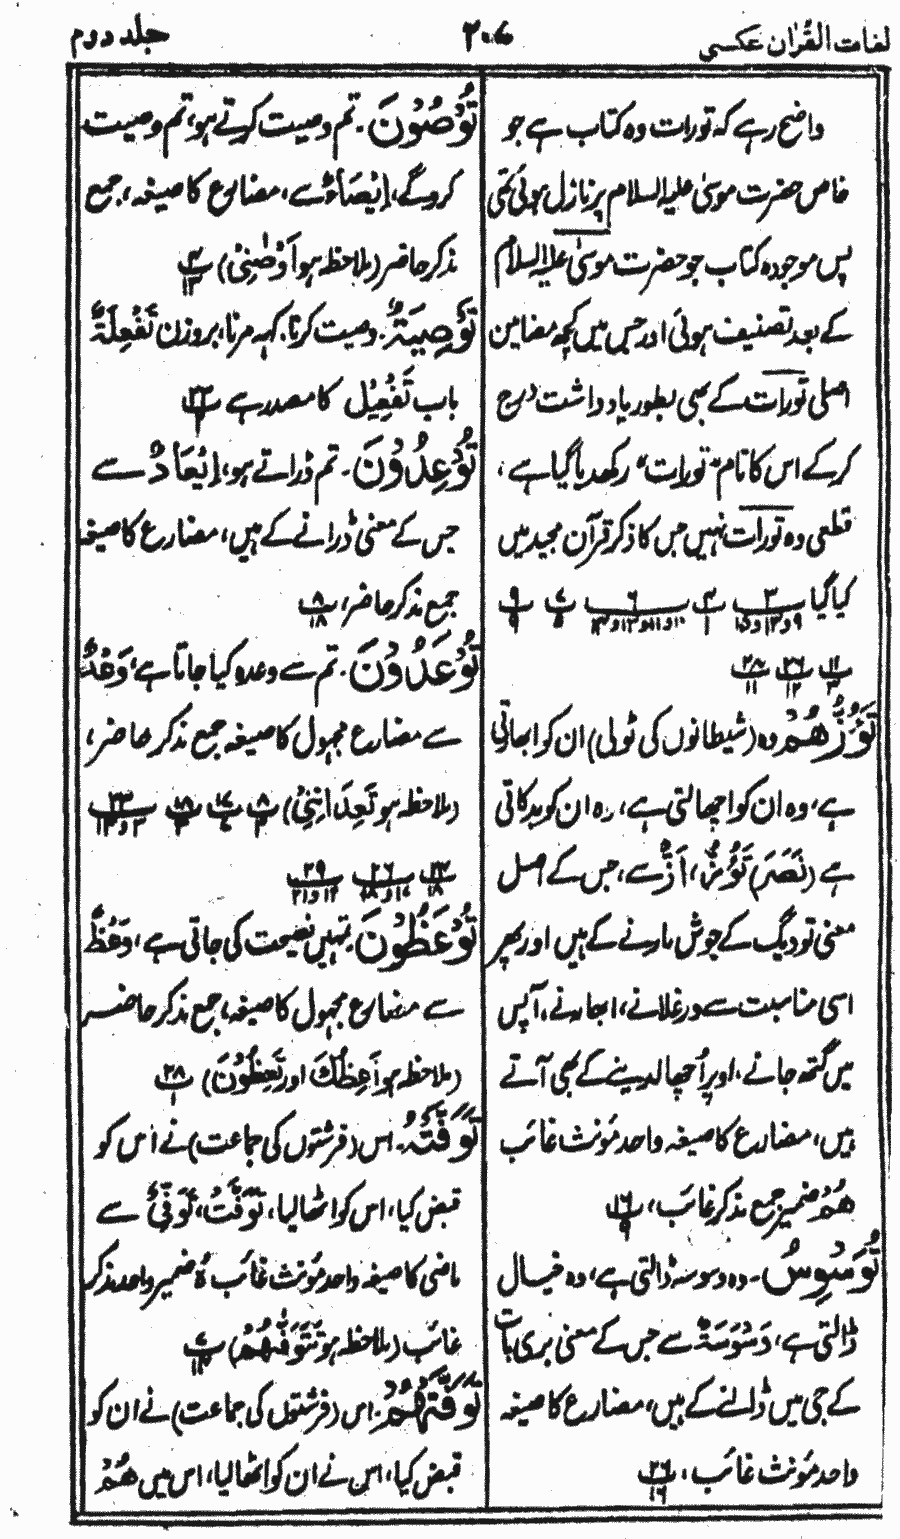 لغات القرآن عکسی
۲۰۷
جلد دوم
واضح رہے کہ تورات وہ کتاب ہے جو
خاص حضرت موسیٰ علیہ السلام پر نازل ہوئی تھی
پس موجودہ کتاب جو حضرت موسیٰ علیہ السلام
کے بعد تصنیف ہوئی اور جس میں کچھ مضامین
اصلی تورات کے بھی بطور یاد داشت درج
کرکے اس کا نام "تورات" رکھ دیا گیا ہے،
قطعی وہ تورات نہیں جس کا ذکر قرآن مجید میں
کیا گیا
تَؤُزُّهُمْ وہ (شیطانوں کی ٹولی) ان کو ابھارتی
ہے، وہ ان کو اچھالتی ہے، وہ ان کو بھڑکاتی
ہے (نَصَرَ) تَؤُزُّ، اَزٌّ سے، جس کے اصل
معنی تو دیگ کے جوش مارنے کے ہیں اور پھر
اسی مناسبت سے ورغلانے، ابھارنے، آپس
میں گتھ جانے، اوپر اُچھالدینے کے بھی آتے
ہیں، مضارع کا صیغہ واحد مؤنث غائب
هُمْ ضمیر جمع مذکر غائب، ۱۶/۹
تُوَسْوِسُ۔ وہ وسوسہ ڈالتی ہے، وہ خیال
ڈالتی ہے، وَسْوَسَةٌ سے جس کے معنی بری بات
کے جی میں ڈالنے کے ہیں، مضارع کا صیغہ
واحد مؤنث غائب، ۲۶/۱۶
تُوْصُوْنَ۔ تم وصیت کرتے ہو، تم وصیت
کروگے، اِیْصَاءٌ سے، مضارع کا صیغہ، جمع
مذکر حاضر (ملاحظہ ہو اَوْصٰنِیْ) ۴/۱۳
تَوْصِيَةً۔ وصیت کرنا، کہہ مرنا، بروزن تَفْعِلَةً
باب تَفْعِیْل کا مصدر ہے
تُوْعِدُوْنَ۔ تم ڈراتے ہو، اِیْعَادٌ سے
جس کے معنی ڈرانے کے ہیں، مضارع کا صیغہ
جمع مذکر حاضر، ۸/۱۸
تُوْعَدُوْنَ۔ تم سے وعدہ کیا جاتا ہے، وَعْدٌ
سے مضارع مجہول کا صیغہ جمع مذکر حاضر،
(ملاحظہ ہو تَعِدَانِنِیْ)
تُوْعَظُوْنَ۔ تمہیں نصیحت کی جاتی ہے، وَعْظٌ
سے مضارع مجہول کا صیغہ، جمع مذکر حاضر
(ملاحظہ ہو اَعِظُكَ اور تَعِظُوْنَ) ۲۸/۱
تَوَفَّتْهُ۔ اس (فرشتوں کی جماعت) نے اس کو
قبض کیا، اس کو اٹھا لیا، تَوَفَّتْ، تَوَفِّیْ سے
ماضی کا صیغہ واحد مؤنث غائب هُ ضمیر واحد مذکر
غائب (ملاحظہ ہو تَتَوَفّٰهُمْ)
تَوَفَّتْهُمْ۔ اس (فرشتوں کی جماعت) نے ان کو
قبض کیا، اس نے ان کو اٹھا لیا، اس میں هُمْ